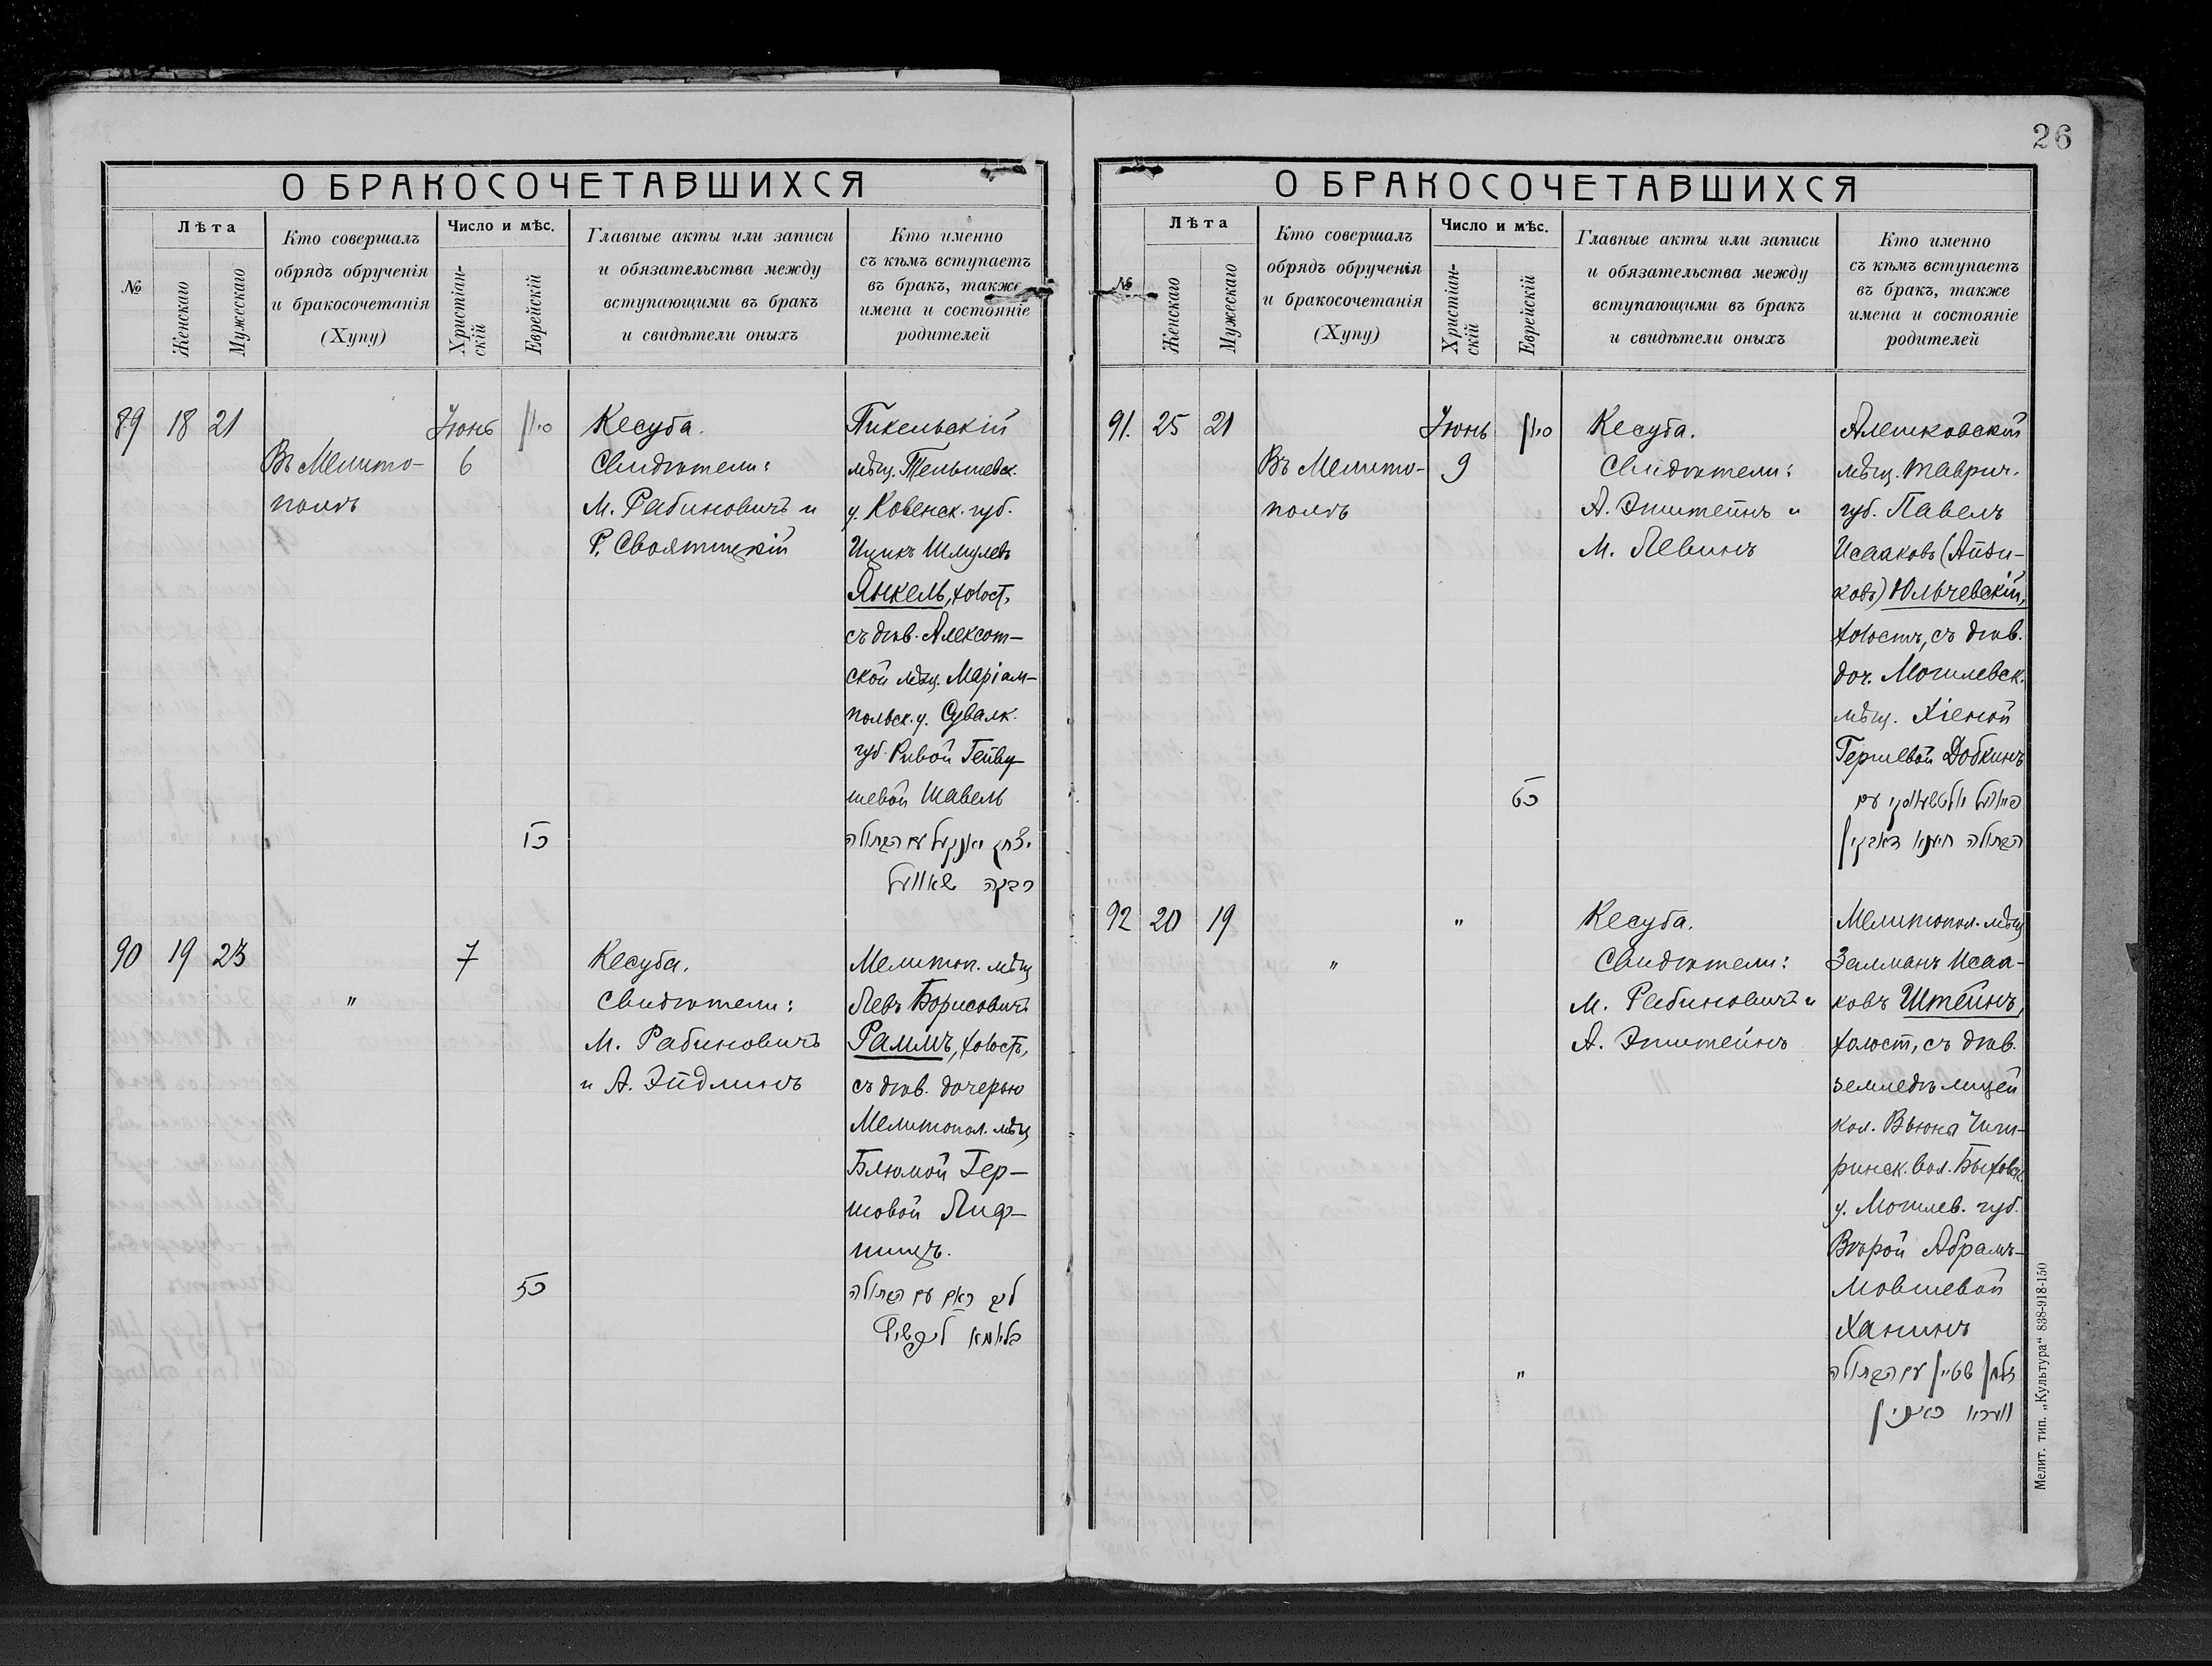 26
О БРАКОСОЧЕТАВШИХСЯ
№
Лѣта
Женскаго
Мужескаго
Кто совершалъ
обрядъ обрученія
и бракосочетанія
(Хупу)
Число и мѣс.
Христіан-
скій
Еврейскій
Главные акты или записи
и обязательства между
вступающими въ бракъ
и свидѣтели оныхъ
Кто именно
съ кѣмъ вступаетъ
въ бракъ, также
имена и состояніе
родителей
89 18 21
Въ Мелито-
полѣ
Іюнь
6
סיון
כו
Кесуба.
Свидѣтели:
М. Рабиновичъ и
Р. Святицкій
Пикельскій
мѣщ. Тельшевск.
у. Ковенск. губ.
Ицикъ Шмулевъ
Янкель, холост,
съ дѣв. Алексот-
ской мѣщ. Маріам-
польск. у. Сувалк.
губ. Ривой Гейву-
шевой Шавель
יצחק יאנקעל עם הבתולה
רבקה שאוועל
90 19 23
"
7
Кесуба.
Свидѣтели:
М. Рабиновичъ
и А. Эйдлинъ
Мелитоп. мѣщ
Левъ Борисовичъ
Раммъ, холостъ,
съ дѣв. дочерью
Мелитопол. мѣщ
Блюмой Гер-
шовой Лиф-
шицъ.
ליב ראם עם הבתולה
בלומא ליפשיץ
О БРАКОСОЧЕТАВШИХСЯ
№
Лѣта
Женскаго
Мужескаго
Кто совершалъ
обрядъ обрученія
и бракосочетанія
(Хупу)
Число и мѣс.
Христіан-
скій
Еврейскій
Главные акты или записи
и обязательства между
вступающими въ бракъ
и свидѣтели оныхъ
Кто именно
съ кѣмъ вступаетъ
въ бракъ, также
имена и состояніе
родителей
91. 25 21
Въ Мелито-
полѣ
Іюнь
9
סיון
כט
Кесуба.
Свидѣтели:
А. Эпштейнъ и
М. Левинъ
Алешковскій
мѣщ. Таврич.
губ. Павелъ
Исааковъ (Айзи-
ковъ) Юльчевскій,
холостъ, съ дѣв.
доч. Могилевск.
мѣщ. Хіеной
Гершевой Добкинъ
עם
הבתולה חיענא דאבקין
92 20 19
"
"
"
Кесуба.
Свидѣтели:
М. Рабиновичъ и
А. Эпштейнъ
Мелитопол. мѣщ
Залманъ Исаа-
ковъ Штейнъ,
холост, съ дѣв.
земледѣлицей
кол. Вьюна Чиги-
ринск. вол. Быховск.
у. Могилев. губ.
Вѣрой Абрамъ-
Мовшевой
Ханинъ
זלמן שטיין עם הבתולה
ווערא חאנין
Мелит. тип. „Культура“ 838-918-150